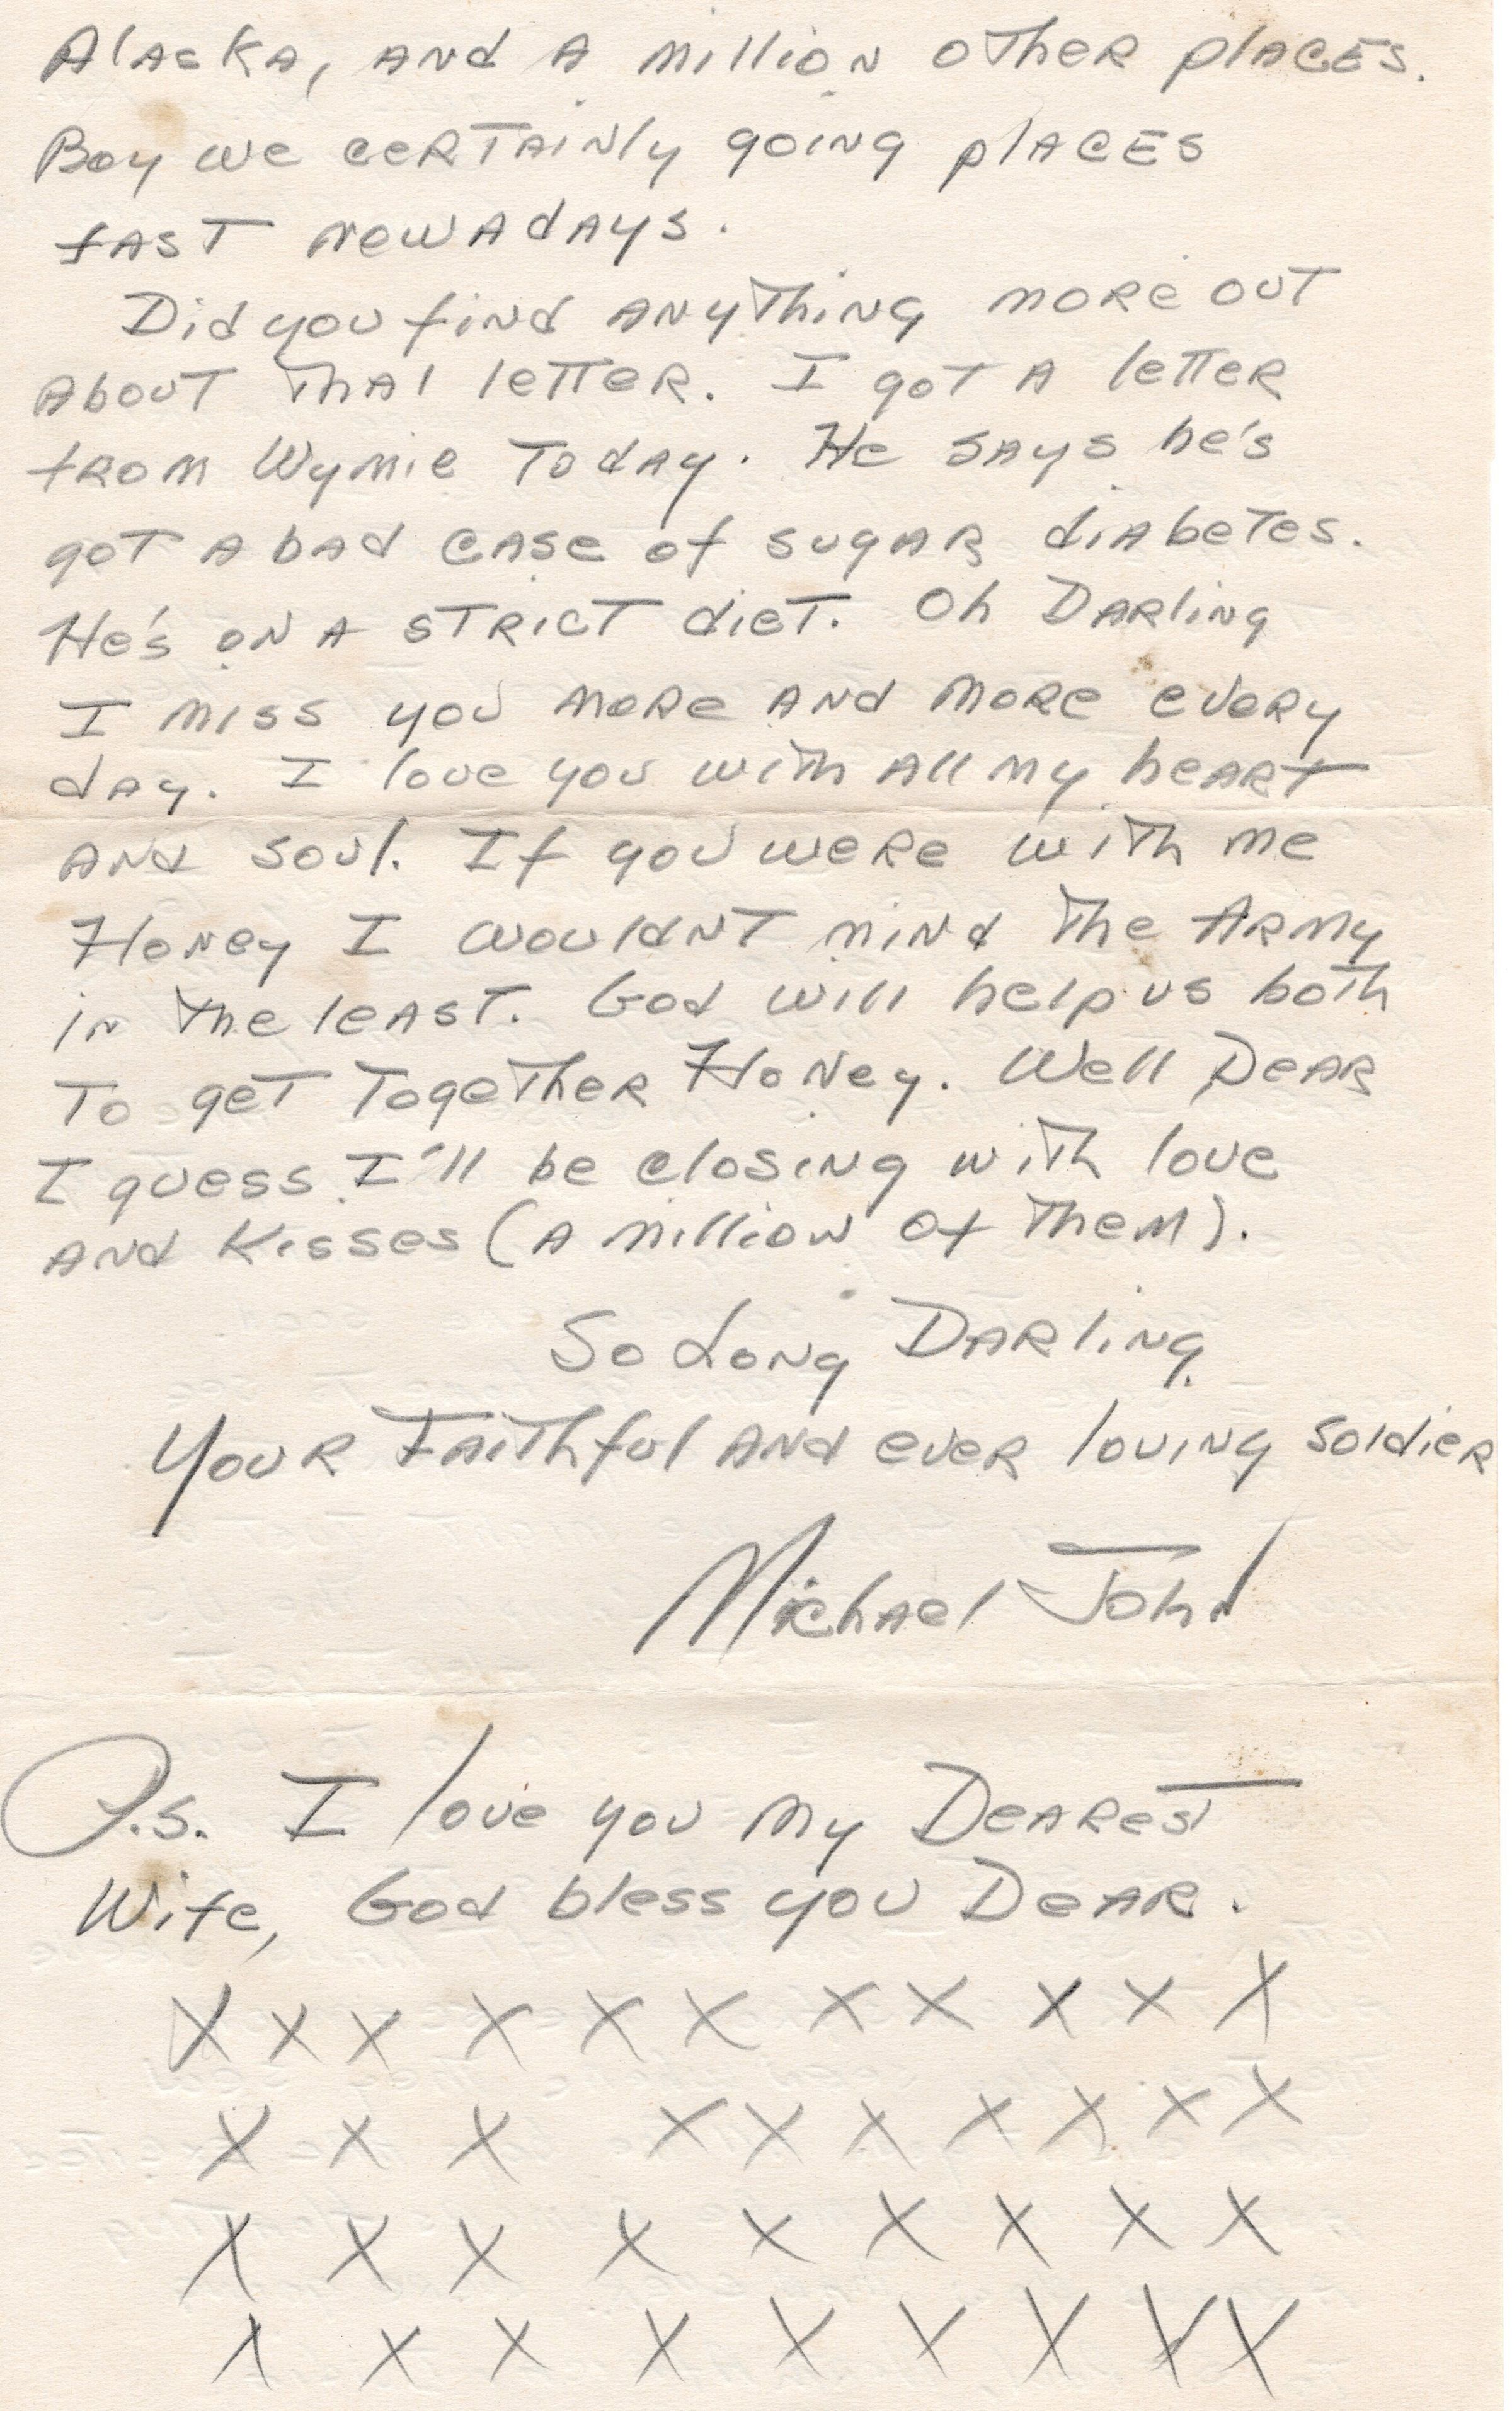 Alaska, and a million other places.
Boy we certainly going places
fast nowadays.
Did you find anything more out
about that letter. I got a letter
from Wymie today. He says he's
got a bad case of sugar diabetes.
He's on a strict diet. Oh Darling
I miss you more and more every
day. I love you with all my heart
and soul. If you were with me
Honey I wouldnt mind the Army
in the least. God will help us both
to get together Honey. Well Dear
I guess I'll be closing with love
and kisses (a million of them).
So Long Darling.
Your Faithful and ever loving soldier
Michael John
P.S. I love you my Dearest
Wife, God bless you Dear.
X X X X X X X X X X X
X X X X X X X X X X
X X X X X X X X X
X X X X X X X X X